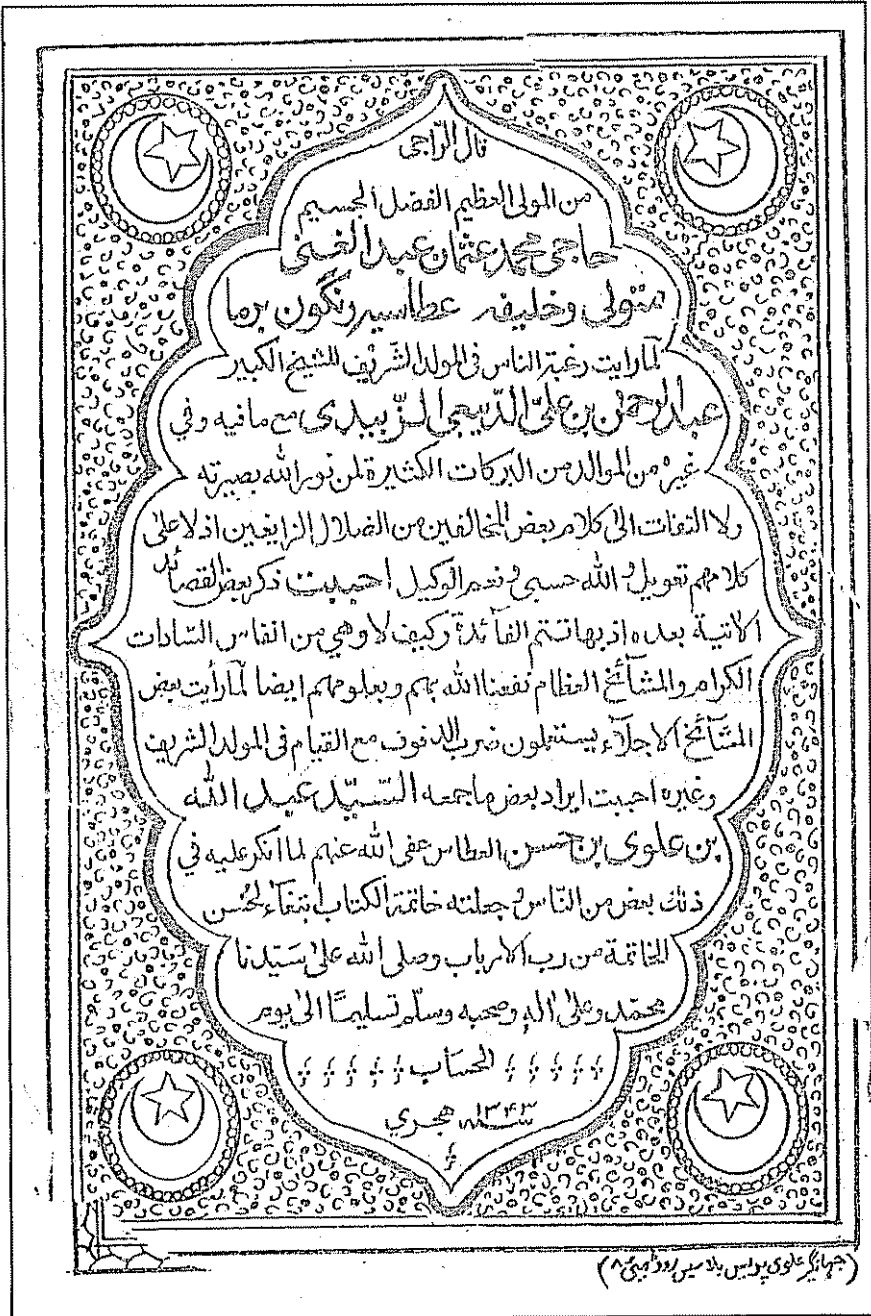 قال الراجی
من المولى العظيم الفضل الجسيم
حاجی محمد عثمان عبدالغنی
متولی وخلیفه عطاسیه رنگون برما
لما رایت رغبة الناس فی المولد الشریف للشیخ الکبیر
عبدالرحمٰن بن علیّ الدّیبعی الزّبیدی مع مافیه وفی
غیره من الموالد من البرکات الکثیرة لمن نور الله بصیرته
ولا التفات الیٰ کلام بعض المخالفین من الضلال الزایغین اذ لا علیٰ
کلامهم تعویل و الله حسبی و نعم الوکیل احببت ذکر بعض القصائد
الاتیة بعده اذ بها تتم الفآئدة وکیف لا وهی من انفاس السّادات
الکرام والمشآئخ العظام نفعنا الله بهم وبعلومهم ایضا لمّا رأیت بعض
المشآئخ الاجلآء یستعملون ضرب الدفوف مع القیام فی المولد الشریف
وغیره احببت ایراد بعض ماجمعه السّیّد عبد الله
بن علوی بن حسن العطاس عفی الله عنهم لما انکر علیه فی
ذلك بعض من النّاس و جعلته خاتمة الکتاب ابتغآء لحُسن
الخاتمة من رب الارباب وصلی الله علیٰ سَیّدنا
محمّد وعلیٰ اٰله وصحبه وسلّم تسلیمًا الیٰ یوم
الحسَاب
سنة ۱۳۴۳ هجري
(جہانگیر علوی پریس بلاسیس روڈ بمبئی ۸)